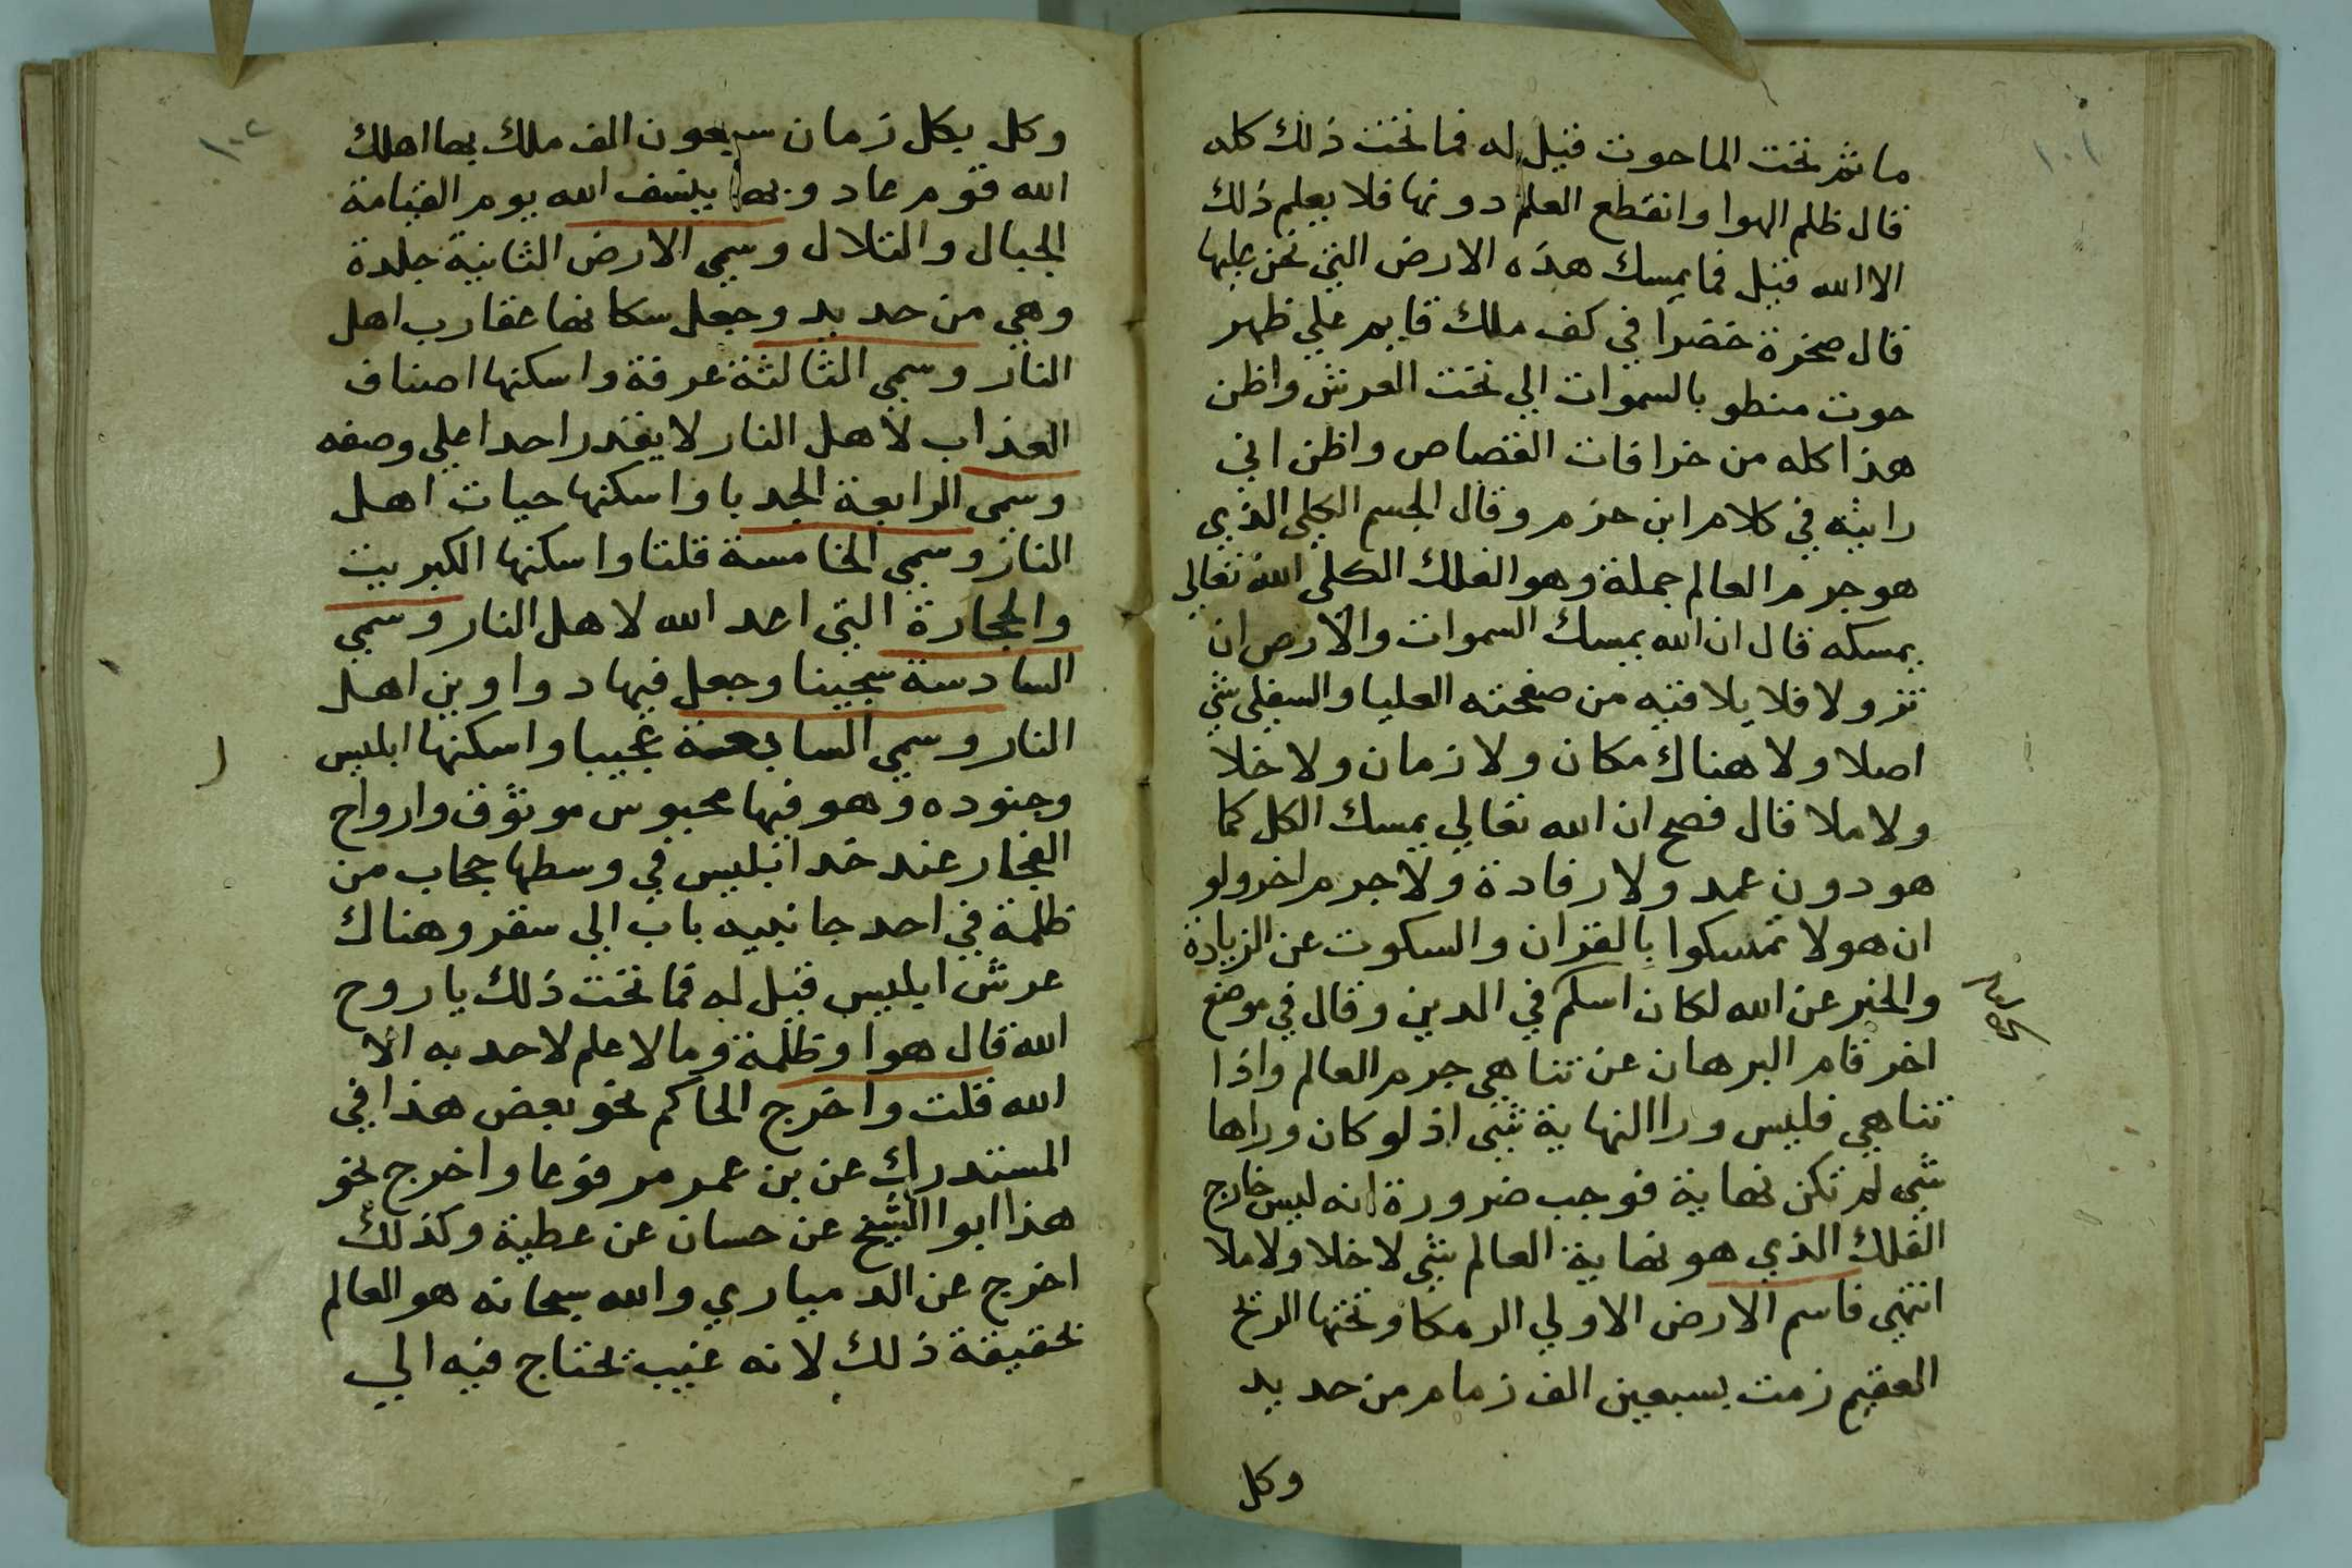 ١٠١
ما ثم تحت الماحوت فقيل له فما تحت ذلك كله
قال ظلم الهوا وانقطع العلم دونها فلا يعلم ذلك
الا الله فقيل فما يمسك هذه الارض التي نحن عليها
قال صخرة خضرا في كف ملك قايم علي ظهر
حوت منطو بالسموات الي تحت العرش واظن
هذا كله من خرافات القصاص واظن اني
رايته في كلام ابن حزم وقال الجسم الكلي الذي
هو جرم العالم جملة وهو الفلك الكلي الله تعالي
يمسكه قال ان الله يمسك السموات والارض ان
تزولا فلا يلاقيه من صفحته العليا والسفلي شي
اصلا ولا هناك مكان ولا زمان ولا خلا
ولا ملا قال فصح ان الله تعالي يمسك الكل كما
هو دون عمد ولا رفادة ولا جرم اخر ولو
ان هولا تمسكوا بالقران والسكوت عن الزيادة
والخبر عن الله لكان اسلم في الدين وقال في موضع
اخر قام البرهان عن تناهي جرم العالم واذا
تناهي فليس ورا النهاية شي اذ لو كان وراها
شي لم تكن نهاية فوجب ضرورة انه ليس خارج
الفلك الذي هو نهاية العالم شي لا خلا ولا ملا
انتهي فاسم الارض الاولي الرمكا وتحتها الريح
العقيم زمت بسبعين الف زمام من حديد
وكل
١٠٢
وكل بكل زمان سبعون الف ملك بها اهلك
الله قوم عاد وبها ينسف الله يوم القيامة
الجبال والتلال وسمي الارض الثانية جلدة
وهي من حديد وجعل سكانها عقارب اهل
النار وسمي الثالثة عرفة واسكنها اصناف
العذاب لاهل النار لا يقدر احدا علي وصفه
وسمي الرابعة الجدبا واسكنها حيات اهل
النار وسمي الخامسة قلتا واسكنها الكبريت
والحجارة التي اعد الله لاهل النار وسمي
السادسة سجينا وجعل فيها دواوين اهل
النار وسمي السابعة عجيبا واسكنها ابليس
وجنوده وهو فيها محبوس موثوق وارواح
الفجار عند خد ابليس في وسطها حجاب من
ظلمة في احد جانبيه باب الي سقر وهناك
عرش ابليس فقيل له فما تحت ذلك يا روح
الله قال هوا وظلمة وما لا علم لاحد به الا
الله قلت واخرج الحاكم نحو بعض هذا في
المستدرك عن بن عمر مرفوعا واخرج نحو
هذا ابوا الشيخ عن حسان عن عطية وكذلك
اخرج عن الدمياري والله سبحانه هو العالم
بحقيقة ذلك لانه غيب يحتاج فيه الي